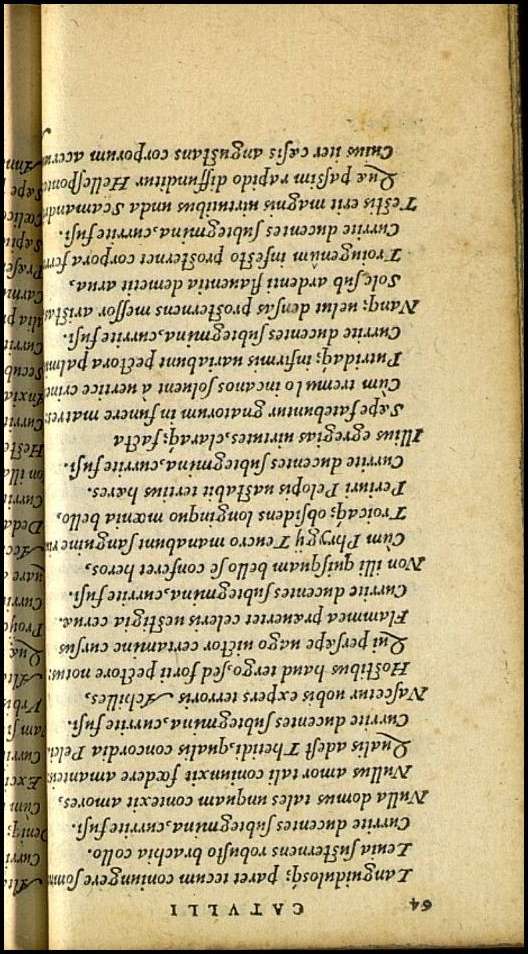 64
CATVLLI
Languidulosq; paret tecum coniungere somn
Lenia susternens robusto brachia collo.
Currite ducentes subtegmina, currite fusi.
Nulla domus tales unquam contexit amores,
Nullus amor tali coniunxit fœdere amanteis
Qualis adest Thetidi, qualis concordia Pelei.
Currite ducentes subtegmina, currite fusi.
Nascetur uobis expers terroris Achilles,
Hostibus haud tergo, sed forti pectore notus:
Qui persæpe uago uictor certamine cursus
Flammea præuertet celeris uestigia ceruæ.
Currite ducentes subtegmina, currite fusi.
Non illi quisquam bello se conferet heros,
Cùm Phrygij Teucro manabunt sanguine
Troicaq; obsidens longinquo mœnia bello,
Periuri Pelopis uastabit tertius hæres.
Currite ducentes subtegmina, currite fusi.
Illius egregias uirtutes, claraq; facta
Sæpe fatebuntur gnatorum in funere matres:
Cùm tremulo incanos soluent à uertice crine
Putridaq; infirmis uariabunt pectora palmi
Currite ducentes subtegmina, currite fusi.
Nanq; uelut densas prosternens messor arist
Sole sub ardenti flauentia demetit arua,
Troiugenûm infesto prosternet corpora ferro
Currite ducentes subtegmina, currite fusi.
Testis erit magnis uirtutibus unda Scamandri
Quæ paßim rapido diffunditur Hellesponto
Cuius iter cæsis angustans corporum aceru